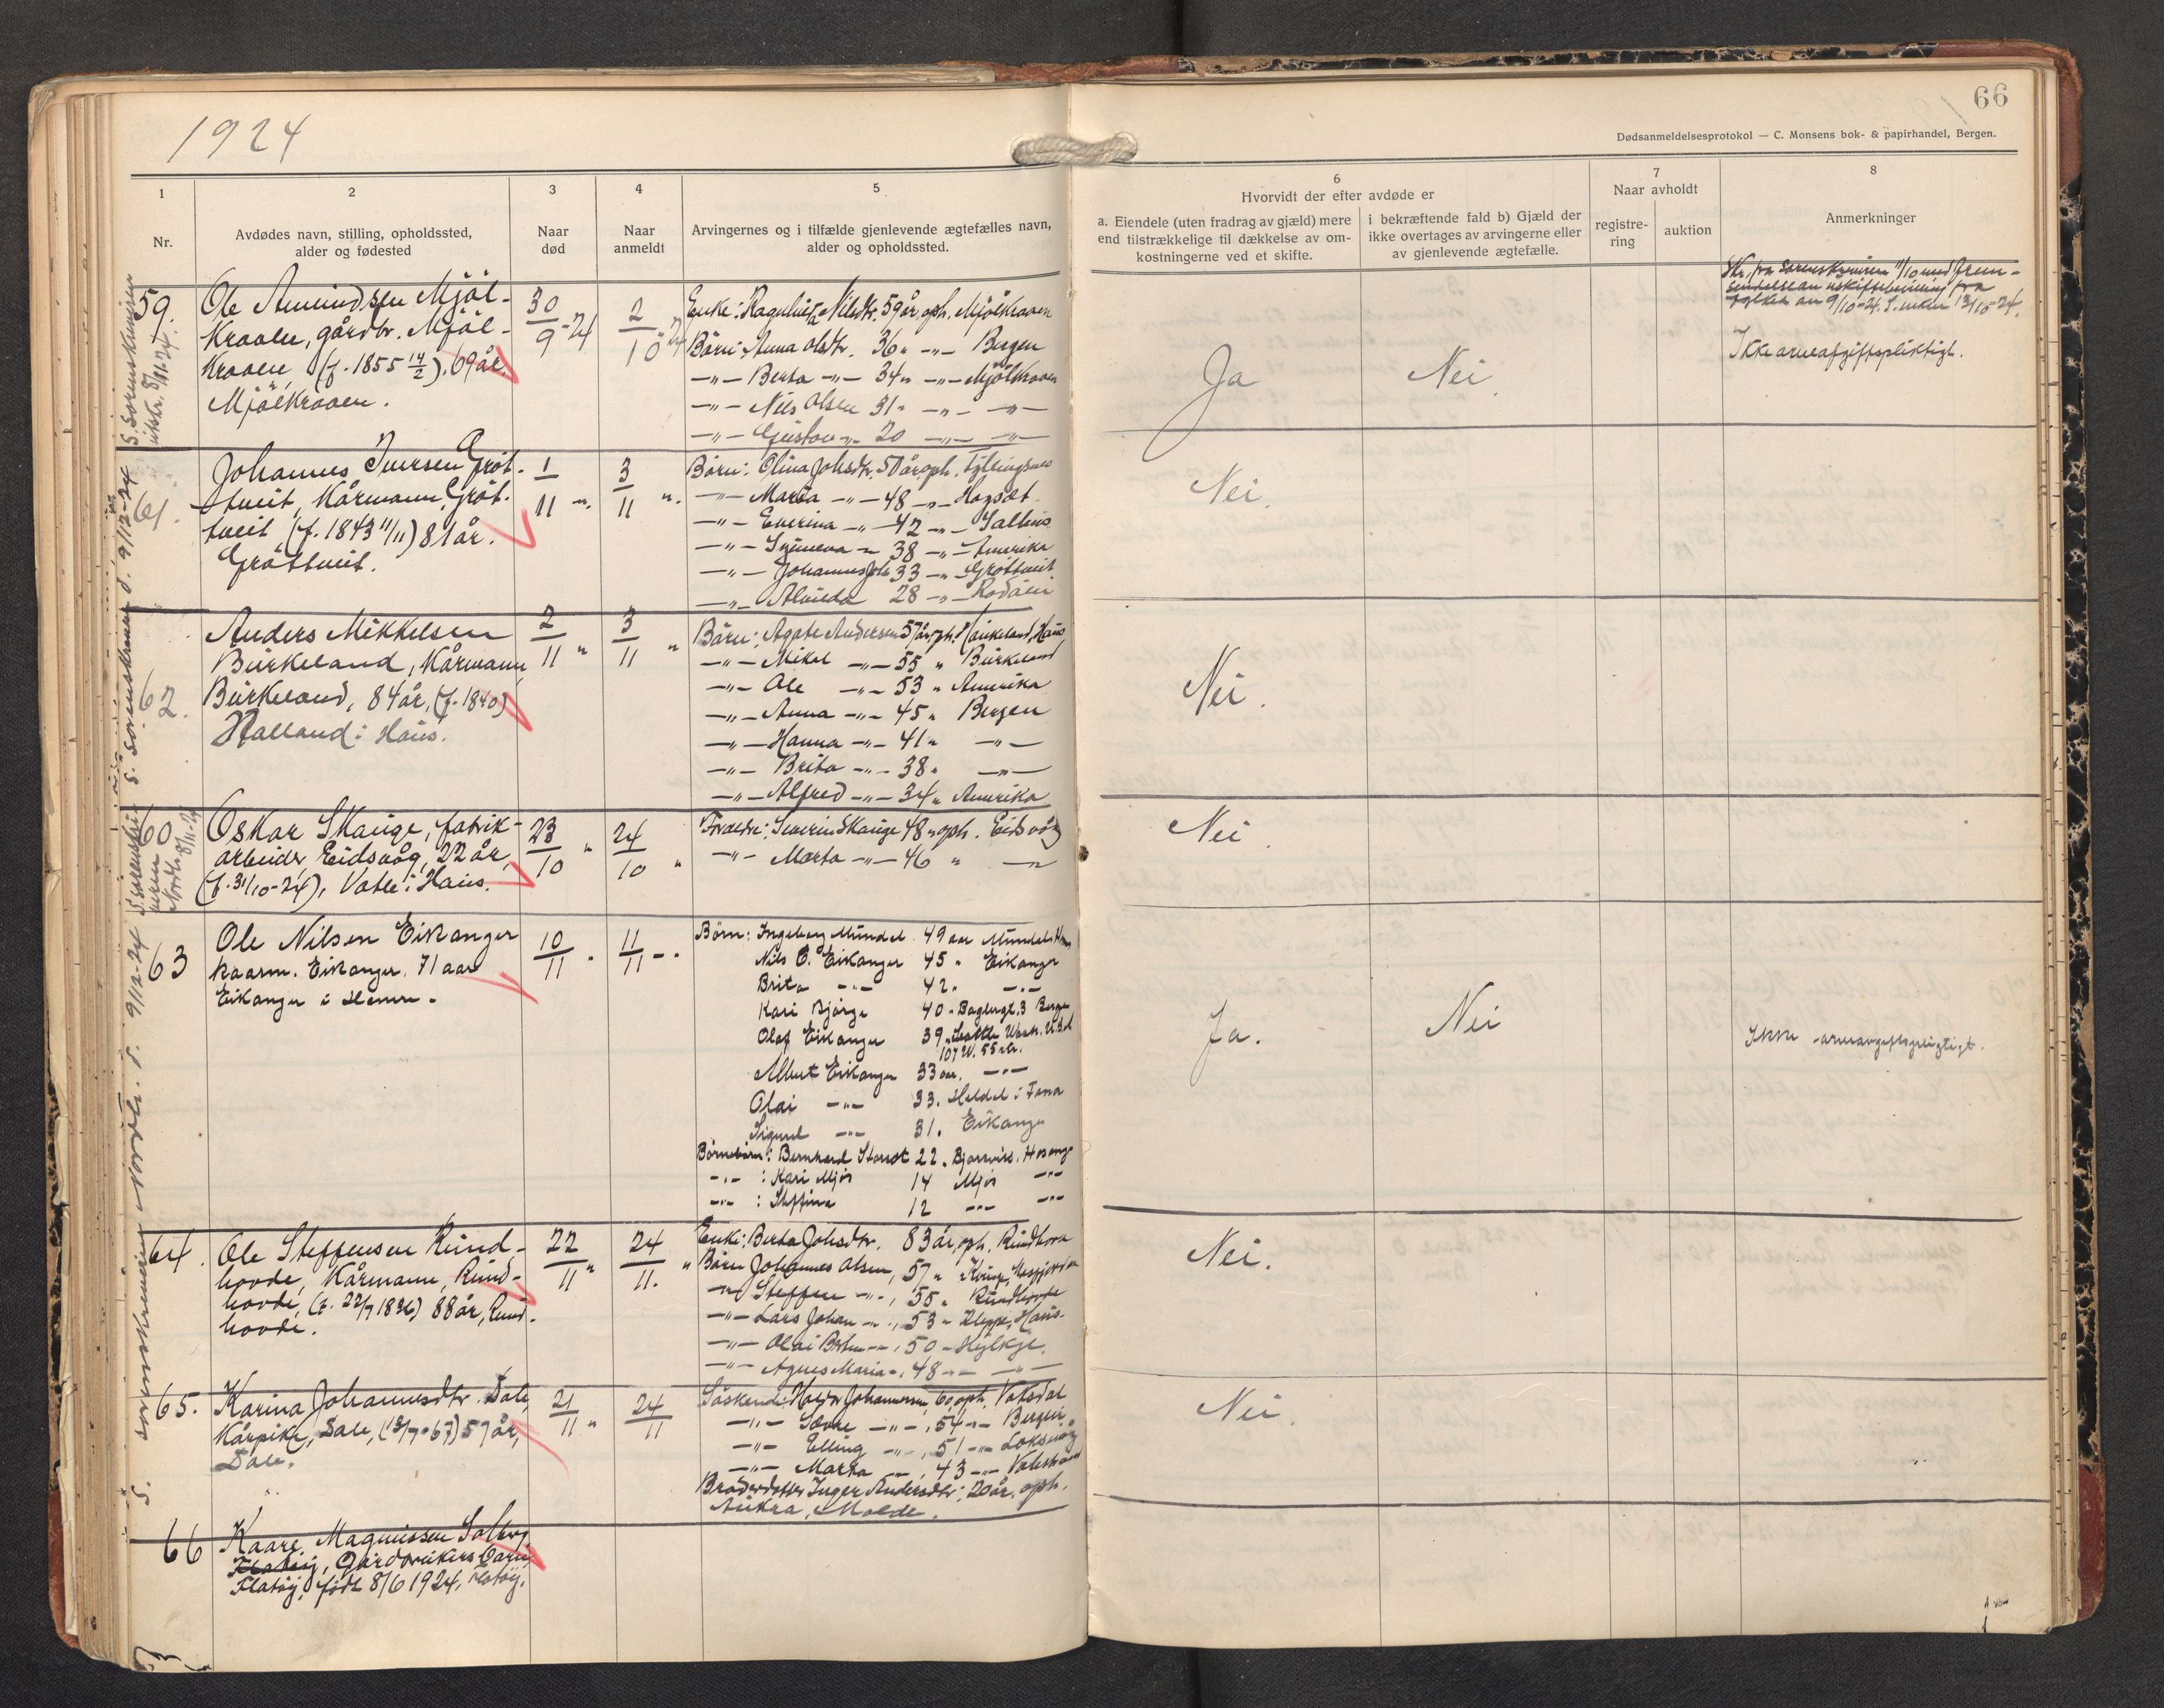 1924
66
Dødsanmeldelsesprotokol — C. Monsens bok- & papirhandel, Bergen.
1
Nr.
2
Avdødes navn, stilling, opholdssted,
alder og fødested
3
Naar
død
4
Naar
anmeldt
5
Arvingernes og i tilfælde gjenlevende ægtefælles navn,
alder og opholdssted.
6
Hvorvidt der efter avdøde er
a. Eiendele (uten fradrag av gjæld) mere
end tilstrækkelige til dækkelse av om-
kostningerne ved et skifte.
i bekræftende fald b) Gjæld der
ikke overtages av arvingerne eller
av gjenlevende ægtefælle.
7
Naar avholdt
registre-
ring
auktion
8
Anmerkninger
59.
Ole Amundsen Mjöl-
kraaen, gårdbr. Mjöl-
kraaen, (f. 1855 14/2), 69 år,
Mjölkraaen.
30/9-24
2/10 24
Enke: Nilsdtr. 59 år, oph. Mjölkraaen
Börn: Anna Olsdtr. 36 " -"- Bergen
-"- Berta -"- 34 " -"- Mjölkraaen
-"- Nils Olsen 31 " -"- -"-
-"- Gustav -"- 20 -"- -"-
Ja
Nei
Ikke arveafgiftspliktigt.
61.
Johannes Iversen Gröt-
tveit, Kårmann, Gröt-
tveit, (f. 1843 11/11) 81 år.
Gröttveit.
1/11 "
3/11 "
Börn: Olina Johsdtr. 50 år, oph.
-"- Maria -"- 48 -"-
-"- Everina -"- 42 -"-
-"- 38 -"- Amerika
-"- Johannes Joh. 33 -"- Gröttveit
-"- Alvilda 28 -"-
Nei.
62.
Anders Mikkelsen
Burkeland, Kårmann
Burkeland, 84 år, (f. 1840)
Halland i Haus.
2/11 "
3/11 "
Börn: Agate Andersen 57 år, oph. Haukeland, Haus
-"- Mikal -"- 55 " Burkeland
-"- Ole -"- 53 " Amerika
-"- Anna -"- 45 " Bergen
-"- Hanna -"- 41 " -"-
-"- Brita -"- 38 " -"-
-"- Alfred -"- 34 " Amerika
Nei.
60
Oskar Skauge, fabrik-
arbeider, Eidsvåg, 22 år,
(f. 31/10-24), Vatle i Haus.
23/10 "
24/10 "
Foraeldre: Severin Skauge 48 " oph. Eidsvåg
-"- Marta -"- 46 " -"-
Nei
63
Ole Nilsen Eikanger
kaarm. Eikanger, 71 aar
Eikanger i Hamre.
10/11 "
11/11 - "
Börn: Ingeborg Mundal 49 aar
Nils O. Eikanger 45 " Eikanger
Brita -"- 42 " -"-
Kari Bjørge 40 " 3 Bergen
Olaf Eikanger 39 " Seattle Wash. U.S.A
107 W. 55 str.
Albert Eikanger 33 aar. -"-
Olai -"- 33. i Fana
Sigurd -"- 31. Eikanger
Börnebörn: Bernhard 22.
-"- : Kari Mjøs 14 Mjøs -"-
-"- : Steffina 12 -"- -"-
Ja.
Nei
Ikke arveavgiftspligtigt.
64.
Ole Steffensen Rund-
hovde, Kårmann, Rund-
hovde, (f. 22/7 1836) 88 år, Rund-
hovde.
22/11 "
24/11. "
Enke: Berta Johsdtr. 83 år, oph. Rundhovde
Börn Johannes Olsen, 57 "
-"- Steffen -"-, 55 " Rundhovde
-"- Lars Johan -"-, 53 " Kleppe, Haus.
-"- Olai -"-, 50 - Hylkje.
-"- Agnes Maria -"-, 48 -"- -"-
Nei.
65.
Karina Johannesdtr. Dale
Kårpike, Dale, 57 år,
Dale.
21/11 "
24/11
Söskende: Johannessen, 60, oph. Vaksdal
-"- -"-, 54 -"- Bergen
-"- Elling -"-, 51 -"-
-"- Marta -"-, 43 -"-
Broderdatter Inger Andersdtr; 20 år, oph.
Aukra, Molde.
Nei.
66
Kaare Magnussen
Flatöy, Gårdbrukers barn
Flatöy, födt 8/6 1924, Flatöy.